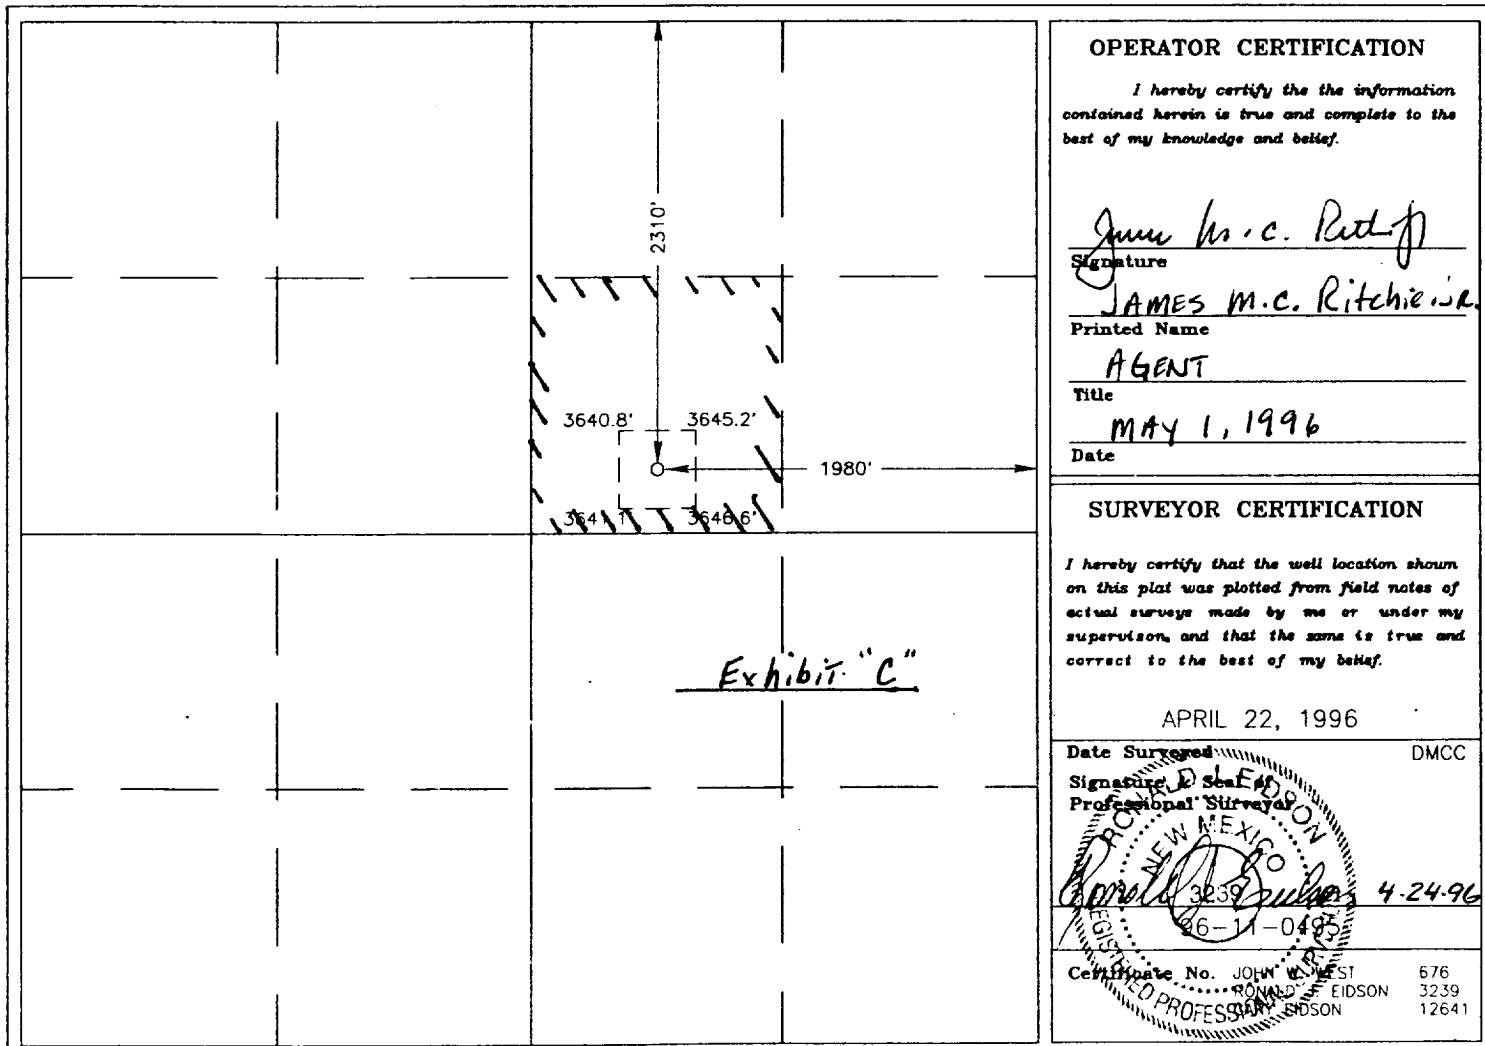 2310'
3640.8' 3645.2'
1980'
3646.6'
Exhibit "C"
OPERATOR CERTIFICATION
I hereby certify the the information
contained herein is true and complete to the
best of my knowledge and belief.
Signature
JAMES M.C. Ritchie JR.
Printed Name
AGENT
Title
MAY 1, 1996
Date
SURVEYOR CERTIFICATION
I hereby certify that the well location shown
on this plat was plotted from field notes of
actual surveys made by me or under my
supervison, and that the same is true and
correct to the best of my belief.
APRIL 22, 1996
Date Surveyed DMCC
Signature & Seal of
Professional Surveyor
RONALD J. EIDSON
NEW MEXICO
3239
REGISTERED PROFESSIONAL SURVEYOR
4-24-96
96-11-0495
Certificate No. JOHN W. WEST 676
RONALD J. EIDSON 3239
GARY EIDSON 12641